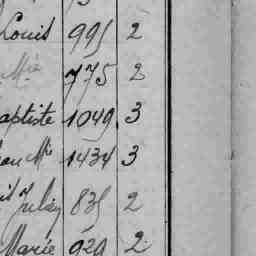 Louis 995 2
Mie 775 2
aptiste 1049. 3
eau Mie 1434 3
Julien 835 2
Marie 929 2